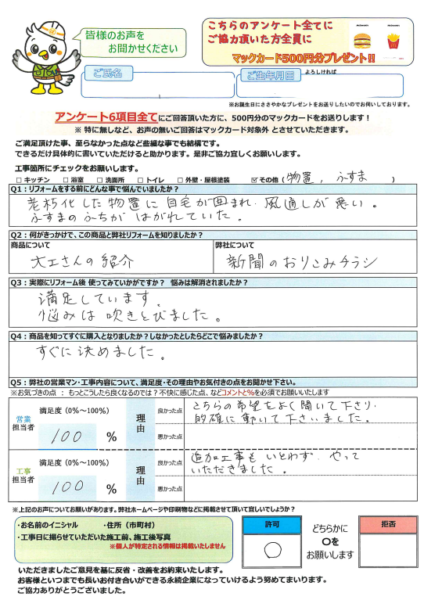 皆様のお声を
お聞かせください
こちらのアンケート全てに
ご協力頂いた方全員に
マックカード500円分プレゼント!!
ご氏名
よろしければ
ご生年月日
※お誕生日にささやかなプレゼントをお送りしたいのでお伺いしております。
アンケート6項目全てにご回答頂いた方に、500円分のマックカードをお送りします!
※ 特に無しなど、お声の無いご回答はマックカード対象外 とさせていただきます。
ご満足頂けた事、至らなかった点など些細な事でも結構です。
できるだけ具体的に書いていただけると助かります。是非ご協力宜しくお願いします。
工事箇所にチェックをお願いします。
□ キッチン □ 浴室 □ 洗面所 □ トイレ □ 外壁・屋根塗装 ☑ その他 ( 物置、ふすま )
Q1:リフォームをする前にどんな事で悩んでいましたか?
老朽化した物置に自宅が囲まれ、風通しが悪い。
ふすまのふちがはがれていた。
Q2:何がきっかけで、この商品と弊社リフォームを知りましたか?
商品について 弊社について
大工さんの紹介 新聞のおりこみチラシ
Q3:実際にリフォーム後 使ってみていかがですか? 悩みは解消されましたか?
満足しています。
悩みは吹きとびました。
Q4:商品を知ってすぐに購入となりましたか?しなかったとしたらどこで悩みましたか?
すぐに決めました。
Q5:弊社の営業マン・工事内容について、満足度・その理由やお気付きの点をお聞かせ下さい。
※お気づきの点 : もっとこうしたら良くなるのでは?不快に感じた点、などコメントと%を必須でお願いいたします
営業
担当者
満足度 (0%~100%)
100 %
理由
良かった点
こちらの希望をよく聞いて下さり、
的確に動いて下さいました。
悪かった点
工事
担当者
満足度 (0%~100%)
100 %
理由
良かった点
追加工事もいとわず、やって
いただきました。
悪かった点
※上記のお声についてお願いがあります。弊社ホームページや印刷物などに掲載させて頂いて宜しいでしょうか?
・お名前のイニシャル ・住所(市町村)
・工事日に撮らせていただいた施工前、施工後写真
※個人が特定される情報は掲載いたしません
許可
○
どちらかに
○を
お願いします
拒否
いただきましたご意見を基に反省・改善をお約束いたします。
お客様といつまでも長いお付き合いができる永続企業になっていけるよう努めてまいります。
ご協力ありがとうございました。